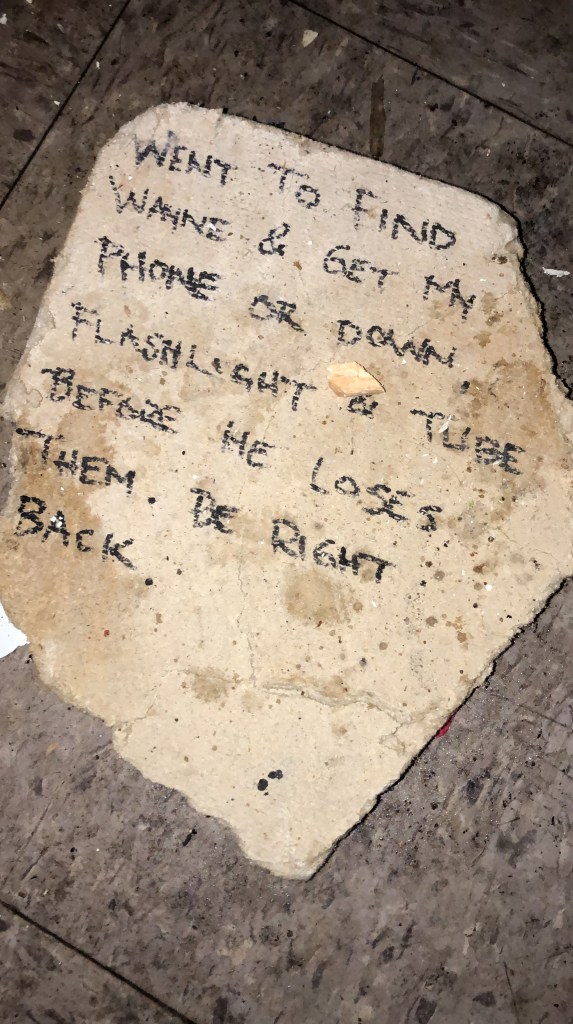 WENT TO FIND
WAYNE & GET MY
PHONE OR DOWN,
FLASHLIGHT & TUBE
BEFORE HE LOSES
THEM. BE RIGHT
BACK.